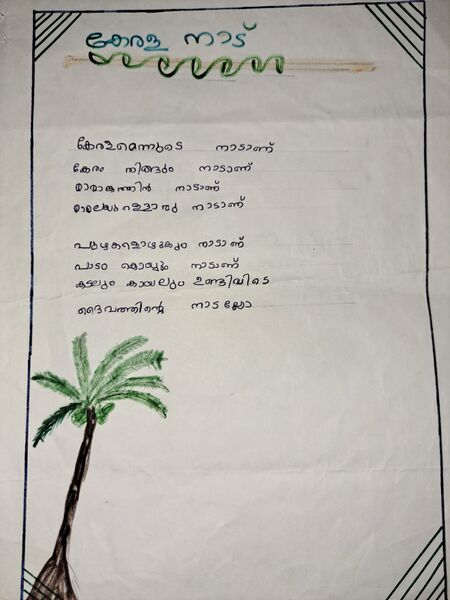 കേരള നാട്
കേരളമെന്നുടെ നാടാണ്
കേരം തിങ്ങും നാടാണ്
മാമാങ്കത്തിൻ നാടാണ്
മാമലയുള്ളൊരു നാടാണ്
പുഴകളൊഴുകും നാടാണ്
പാടം കൊയ്യും നാടാണ്
കടലും കായലും ഉണ്ടിവിടെ
ദൈവത്തിന്റെ നാടല്ലോ